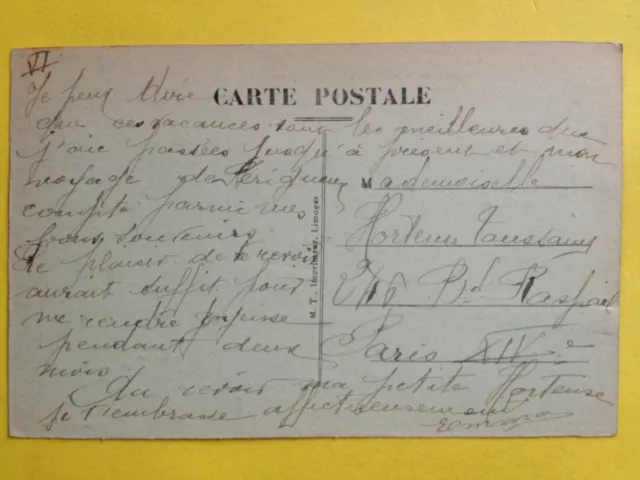 VI
Je peux dire
CARTE POSTALE
que ces vacances sont les meilleures que
j'aie passées jusqu'à présent et mon
voyage de Périgueux
compte parmi mes
bons souvenirs.
Le plaisir de te revoir
aurait suffit pour
me rendre joyeuse
pendant deux
mois.
Au revoir ma petite Hortense
je t'embrasse affectueusement
M. T., Imprimeur, Limoges
Mademoiselle
Hortense Toussaint
216 Bd Raspail
Paris XIVe